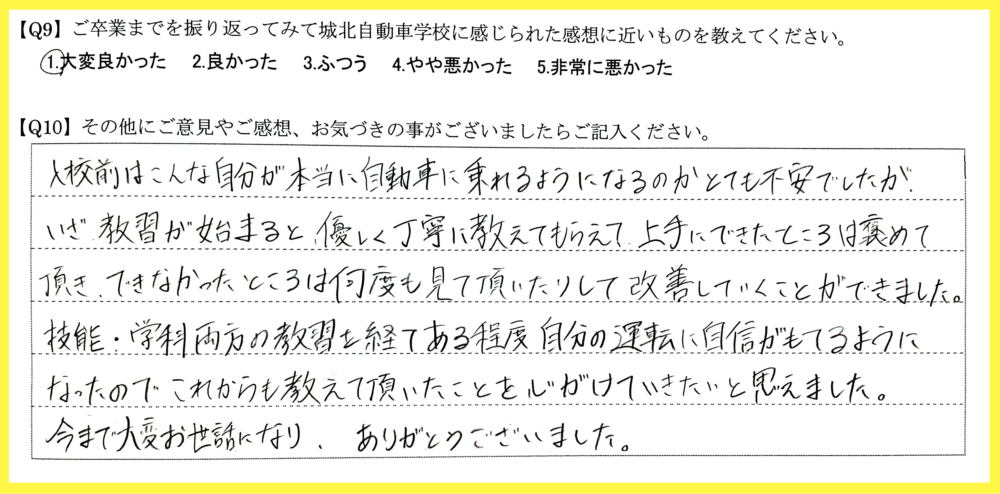 【Q9】ご卒業までを振り返ってみて城北自動車学校に感じられた感想に近いものを教えてください。
1.大変良かった 2.良かった 3.ふつう 4.やや悪かった 5.非常に悪かった
【Q10】その他にご意見やご感想、お気づきの事がございましたらご記入ください。
入校前はこんな自分が本当に自動車に乗れるようになるのかとても不安でしたが、
いざ、教習が始まると、優しく丁寧に教えてもらえて、上手にできたところは褒めて
頂き、できなかったところは何度も見て頂いたりして改善していくことができました。
技能・学科両方の教習を経てある程度自分の運転に自信がもてるように
なったので、これからも教えて頂いたことを心がけていきたいと思えました。
今まで大変お世話になり、ありがとうございました。